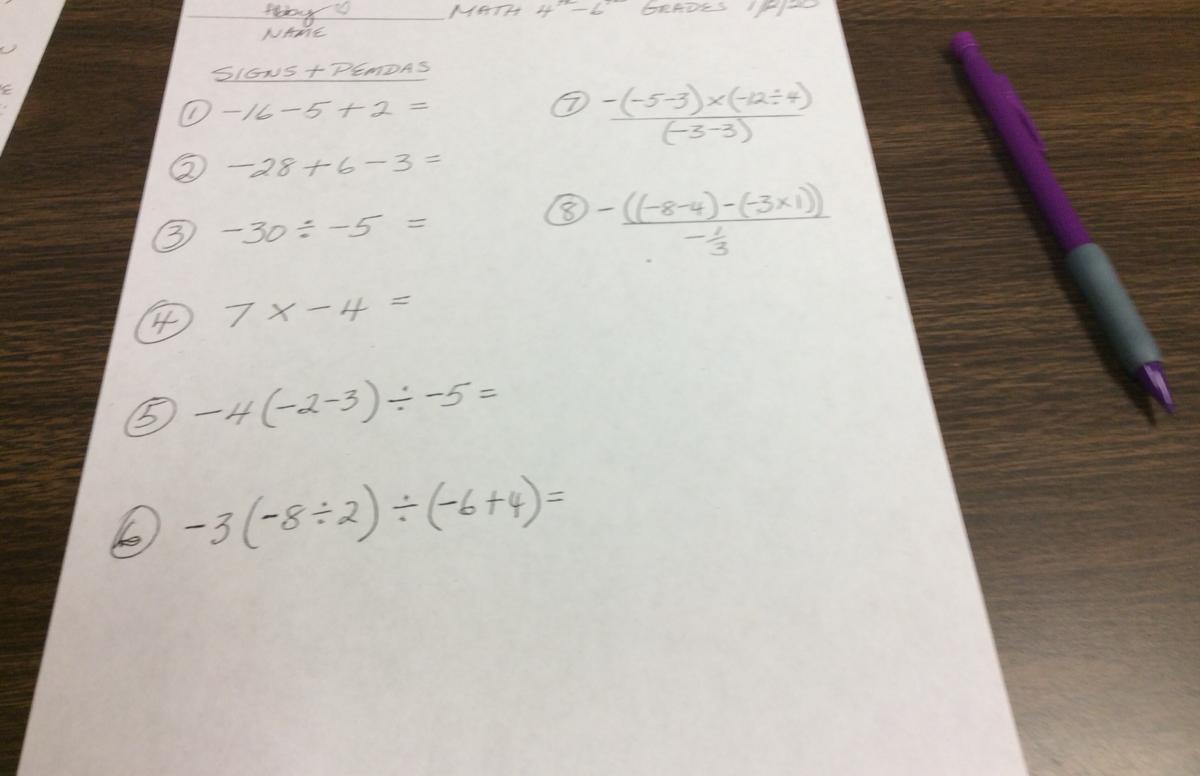 Abby ♡ MATH 4th-6th GRADES
NAME
SIGNS + PEMDAS
① -16-5+2 =
② -28+6-3=
③ -30÷-5 =
④ 7 x -4 =
⑤ -4(-2-3)÷-5=
⑥ -3(-8÷2)÷(-6+4)=
⑦ -(-5-3)x(-12÷4)
(-3-3)
⑧ -((-8-4)-(-3x1))
-1/3